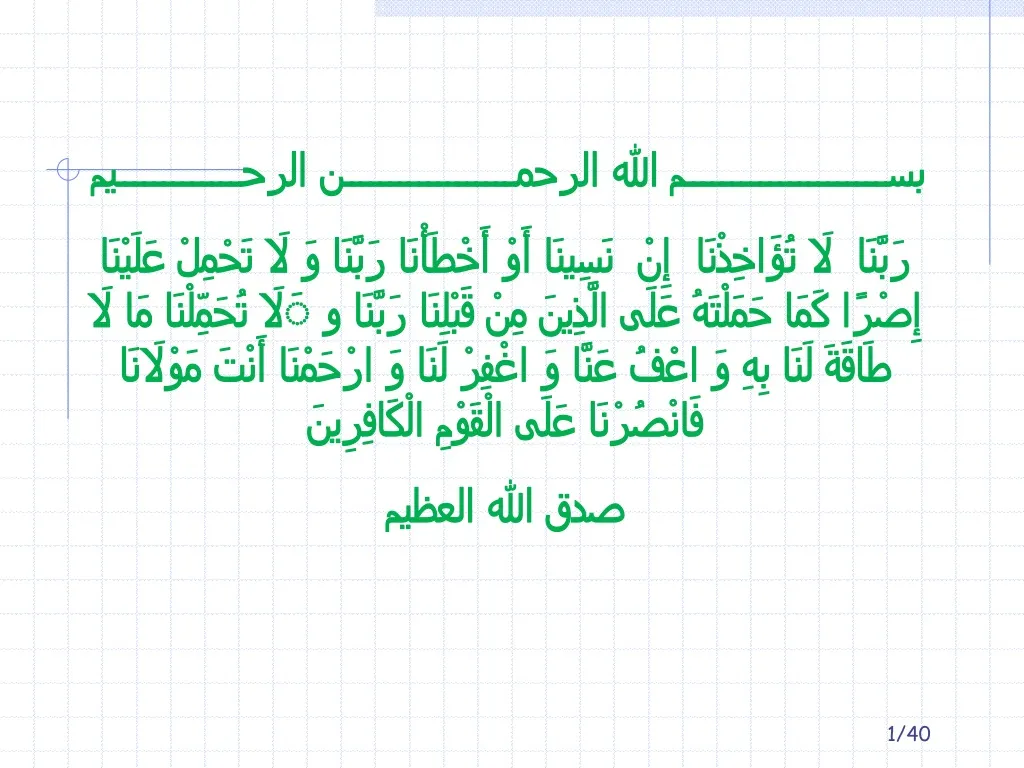 بســـــــــــــــــــــم الله الرحمـــــــــــــــــــن الرحـــــــــــــيم
رَبَّنَا لَا تُؤَاخِذْنَا إِنْ نَسِينَا أَوْ أَخْطَأْنَا رَبَّنَا وَ لَا تَحْمِلْ عَلَيْنَا
إِصْرًا كَمَا حَمَلْتَهُ عَلَى الَّذِينَ مِنْ قَبْلِنَا رَبَّنَا و َلَا تُحَمِّلْنَا مَا لَا
طَاقَةَ لَنَا بِهِ وَ اعْفُ عَنَّا وَ اغْفِرْ لَنَا وَ ارْحَمْنَا أَنْتَ مَوْلَانَا
فَانْصُرْنَا عَلَى الْقَوْمِ الْكَافِرِينَ
صدق الله العظيم
1/40